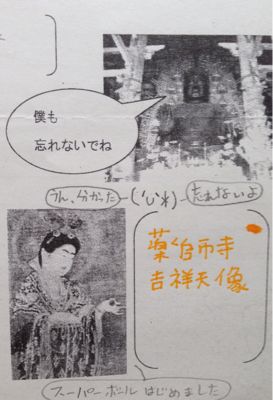 僕も
忘れないでね
うん、分かった
忘れないよ
薬師寺
吉祥天像
スーパーボールはじめました